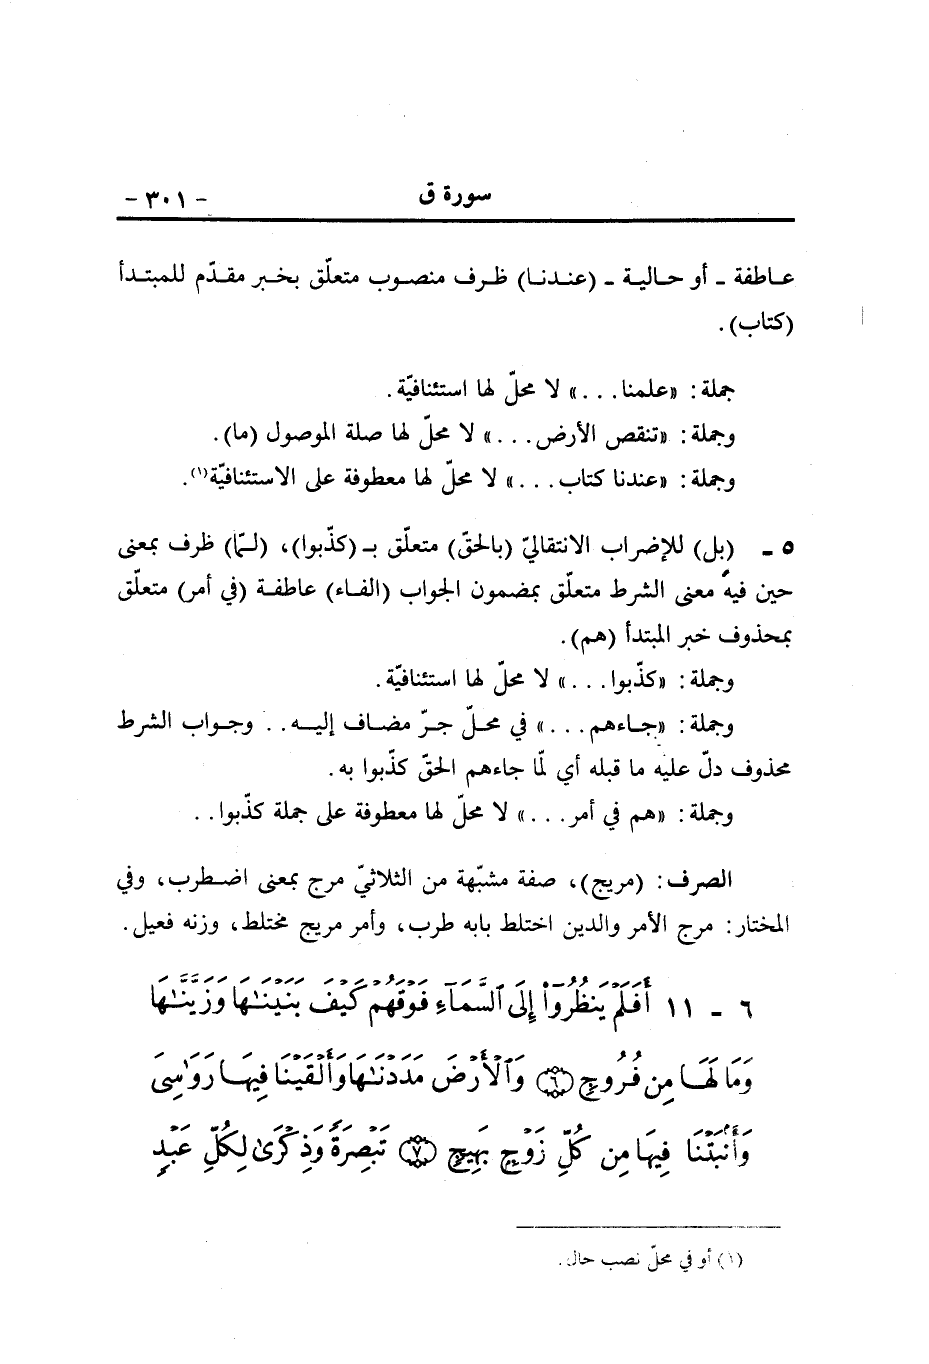 سورة ق - ٣٠١ -
عاطفة - أو حالية - (عندنا) ظرف منصوب متعلّق بخبر مقدّم للمبتدأ
(كتاب).
جملة: «علمنا...» لا محلّ لها استئنافيّة.
وجملة: «تنقص الأرض...» لا محلّ لها صلة الموصول (ما).
وجملة: «عندنا كتاب...» لا محلّ لها معطوفة على الاستئنافيّة(١).
٥ - (بل) للإضراب الانتقاليّ (بالحقّ) متعلّق بـ (كذّبوا)، (لـمّا) ظرف بمعنى
حين فيه معنى الشرط متعلّق بمضمون الجواب (الفاء) عاطفة (في أمر) متعلّق
بمحذوف خبر المبتدأ (هم).
وجملة: «كذّبوا...» لا محلّ لها استئنافيّة.
وجملة: «جاءهم...» في محلّ جرّ مضاف إليه.. وجواب الشرط
محذوف دلّ عليه ما قبله أي لمّا جاءهم الحقّ كذّبوا به.
وجملة: «هم في أمر...» لا محلّ لها معطوفة على جملة كذّبوا..
الصرف: (مريج)، صفة مشبّهة من الثلاثيّ مرج بمعنى اضطرب، وفي
المختار: مرج الأمر والدين اختلط بابه طرب، وأمر مريج مختلط، وزنه فعيل.
٦ - ١١ أَفَلَمْ يَنظُرُوٓا۟ إِلَى ٱلسَّمَآءِ فَوْقَهُمْ كَيْفَ بَنَيْنَٰهَا وَزَيَّنَّٰهَا
وَمَا لَهَا مِن فُرُوجٍ ﴿٦﴾ وَٱلْأَرْضَ مَدَدْنَٰهَا وَأَلْقَيْنَا فِيهَا رَوَٰسِىَ
وَأَنۢبَتْنَا فِيهَا مِن كُلِّ زَوْجٍ بَهِيجٍ ﴿٧﴾ تَبْصِرَةً وَذِكْرَىٰ لِكُلِّ عَبْدٍ
(١) أو في محلّ نصب حال.